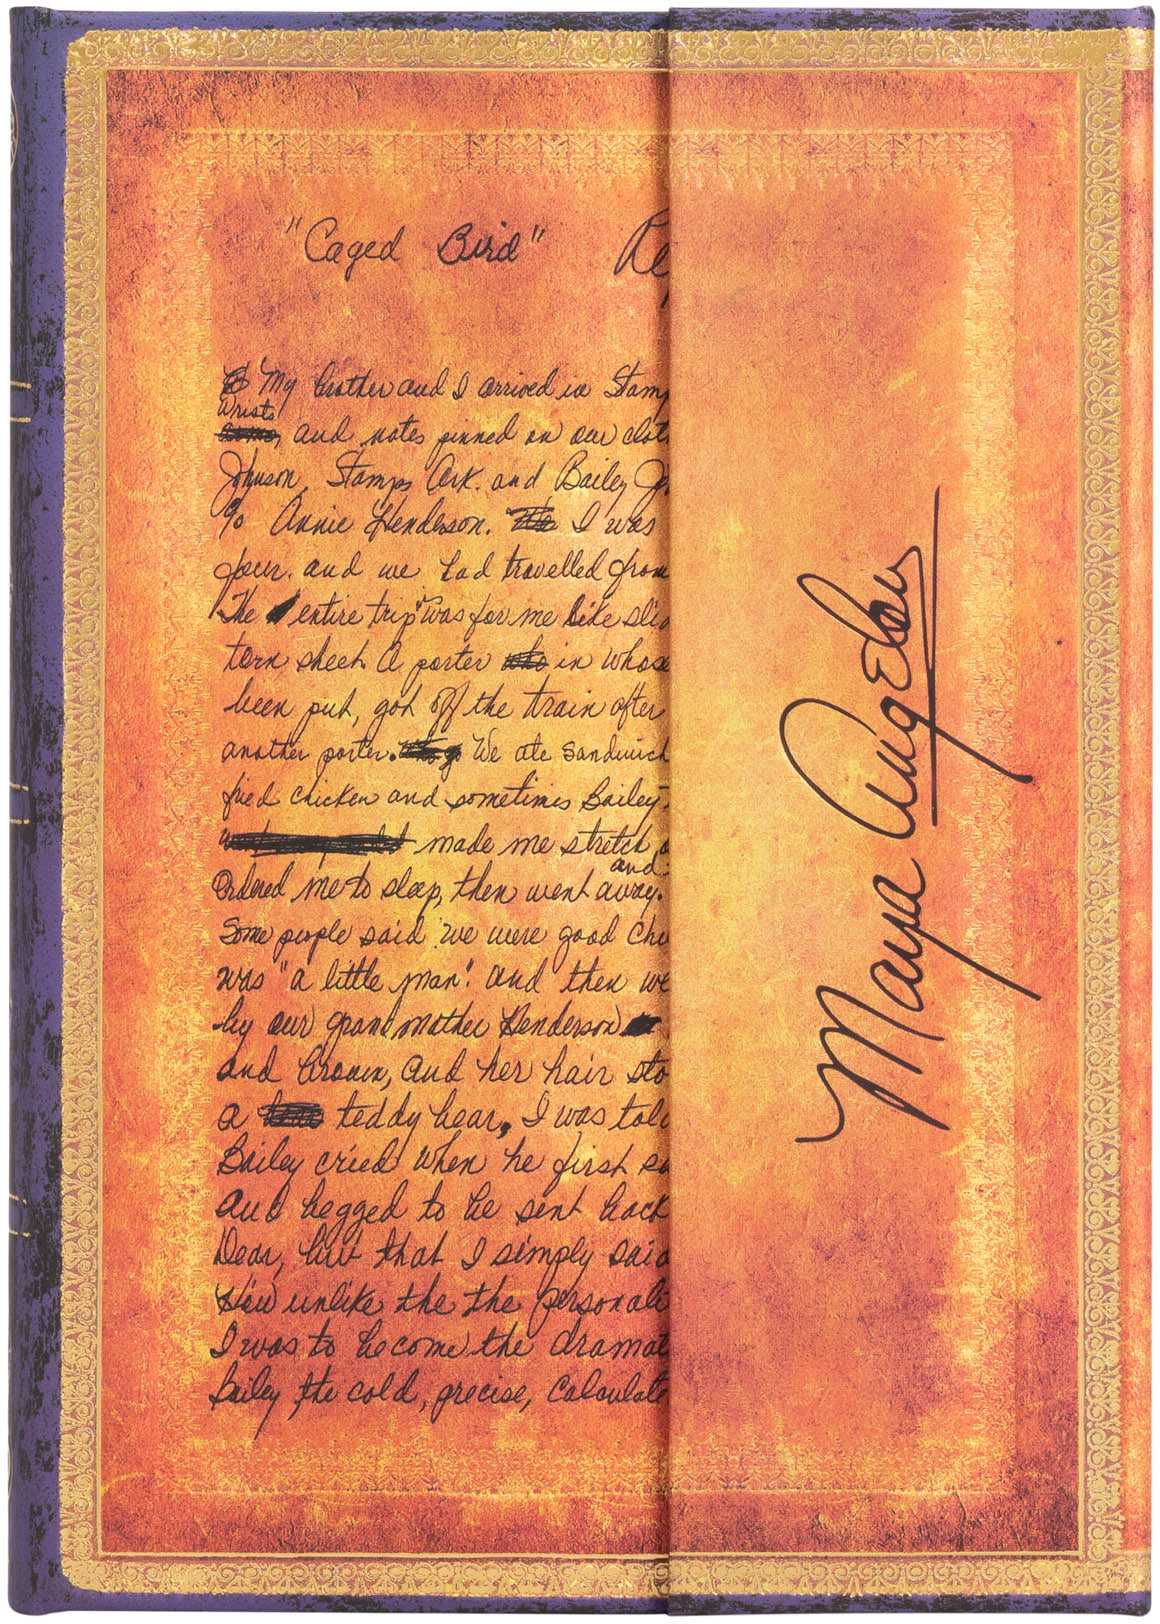 "Caged Bird" Re
My brother and I arrived in Stamp
wrists
and notes pinned on our clot
Johnson, Stamps Ark. and Bailey Jo
c/o Annie Henderson. I was
four. and we had travelled from
The entire trip was for me like slid
torn sheet. A porter in whose
been put, got off the train after
another porter. We ate sandwich
fried chicken and sometimes Bailey
made me stretch
and
ordered me to sleep, then went away.
Some people said we were good chi
was "a little man" and then we
by our grandmother Henderson
and brown, and her hair sto
a teddy bear, I was told
Bailey cried when he first sa
and begged to be sent back
Dear, but that I simply said
How unlike the the personali
I was to become the dramat
Bailey the cold, precise, calculate
Maya Angelou